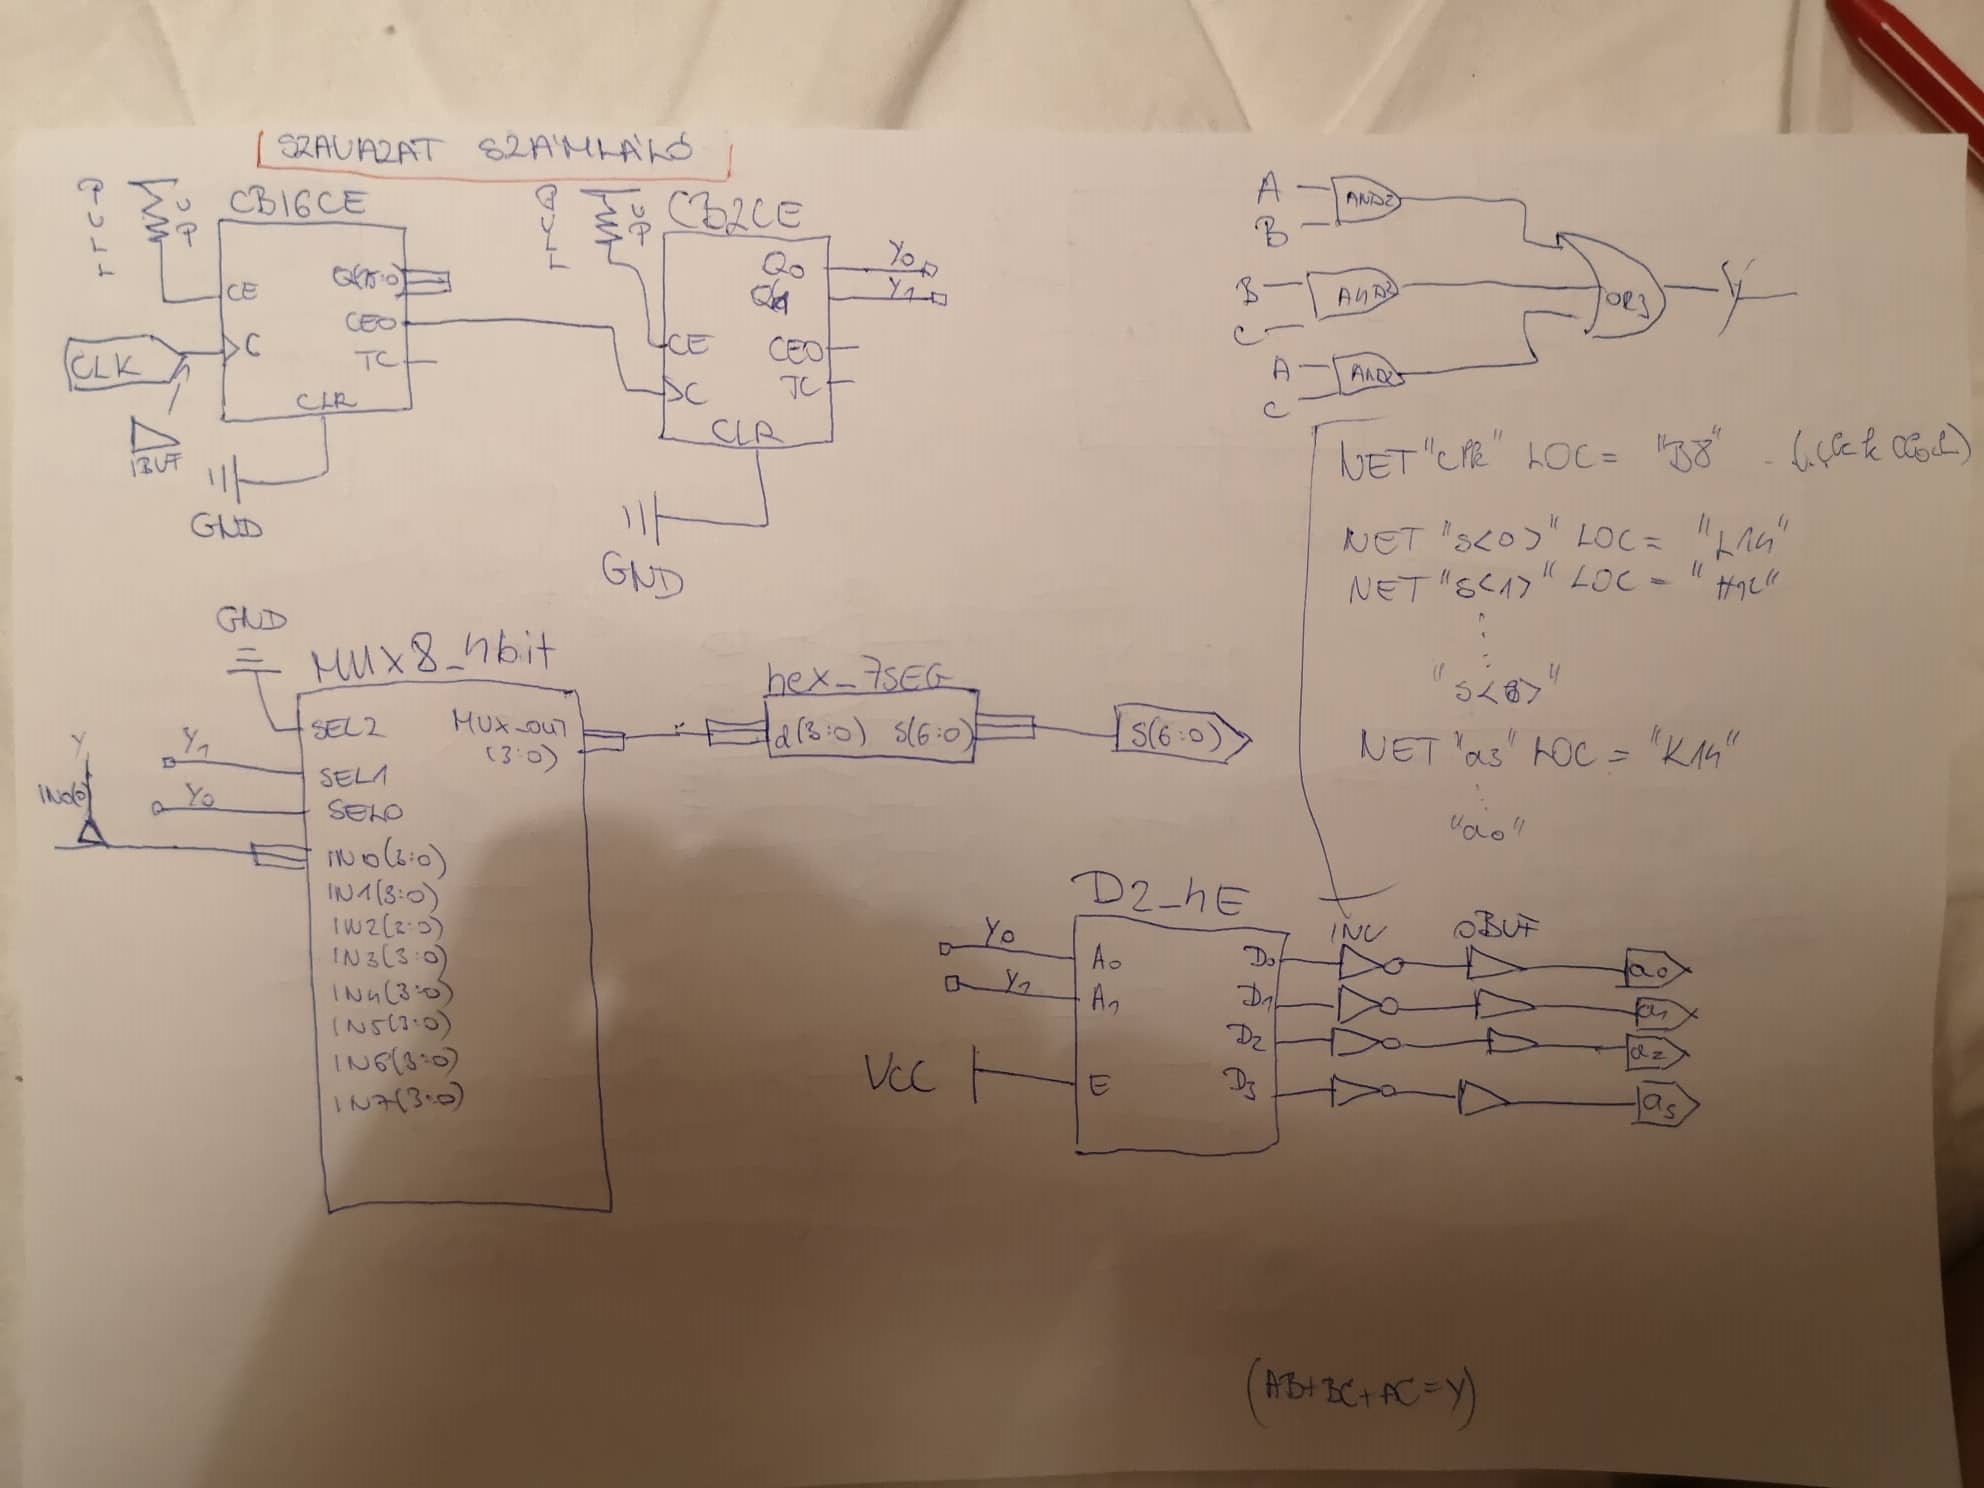 SZAVAZAT SZÁMLÁLÓ
PULL
UP
CB16CE
CE
Q(15:0)
CEO
C
TC
CLR
CLK
IBUF
GND
PULL
UP
CB2CE
Q0
Y0
Y1
CE
CEO
C
TC
CLR
GND
A
B
AND2
B
C
AND2
A
C
AND2
OR3
Y
NET "CLK" LOC = "B8"
NET "S<0>" LOC = "L14"
NET "S<1>" LOC = "H12"
NET "a3" LOC = "K14"
"a0"
GND
MUX8_4bit
SEL2
MUX_OUT
(3:0)
Y1
SEL1
Y0
SEL0
Y
IN0(0)
IN0(3:0)
IN1(3:0)
IN2(3:0)
IN3(3:0)
IN4(3:0)
IN5(3:0)
IN6(3:0)
IN7(3:0)
hex_7SEG
d(3:0) S(6:0)
S(6:0)
D2_4E
Y0
A0
Y1
A1
VCC
E
D0
D1
D2
D3
INV
OBUF
a0
a1
a2
a3
(AB+BC+AC=Y)